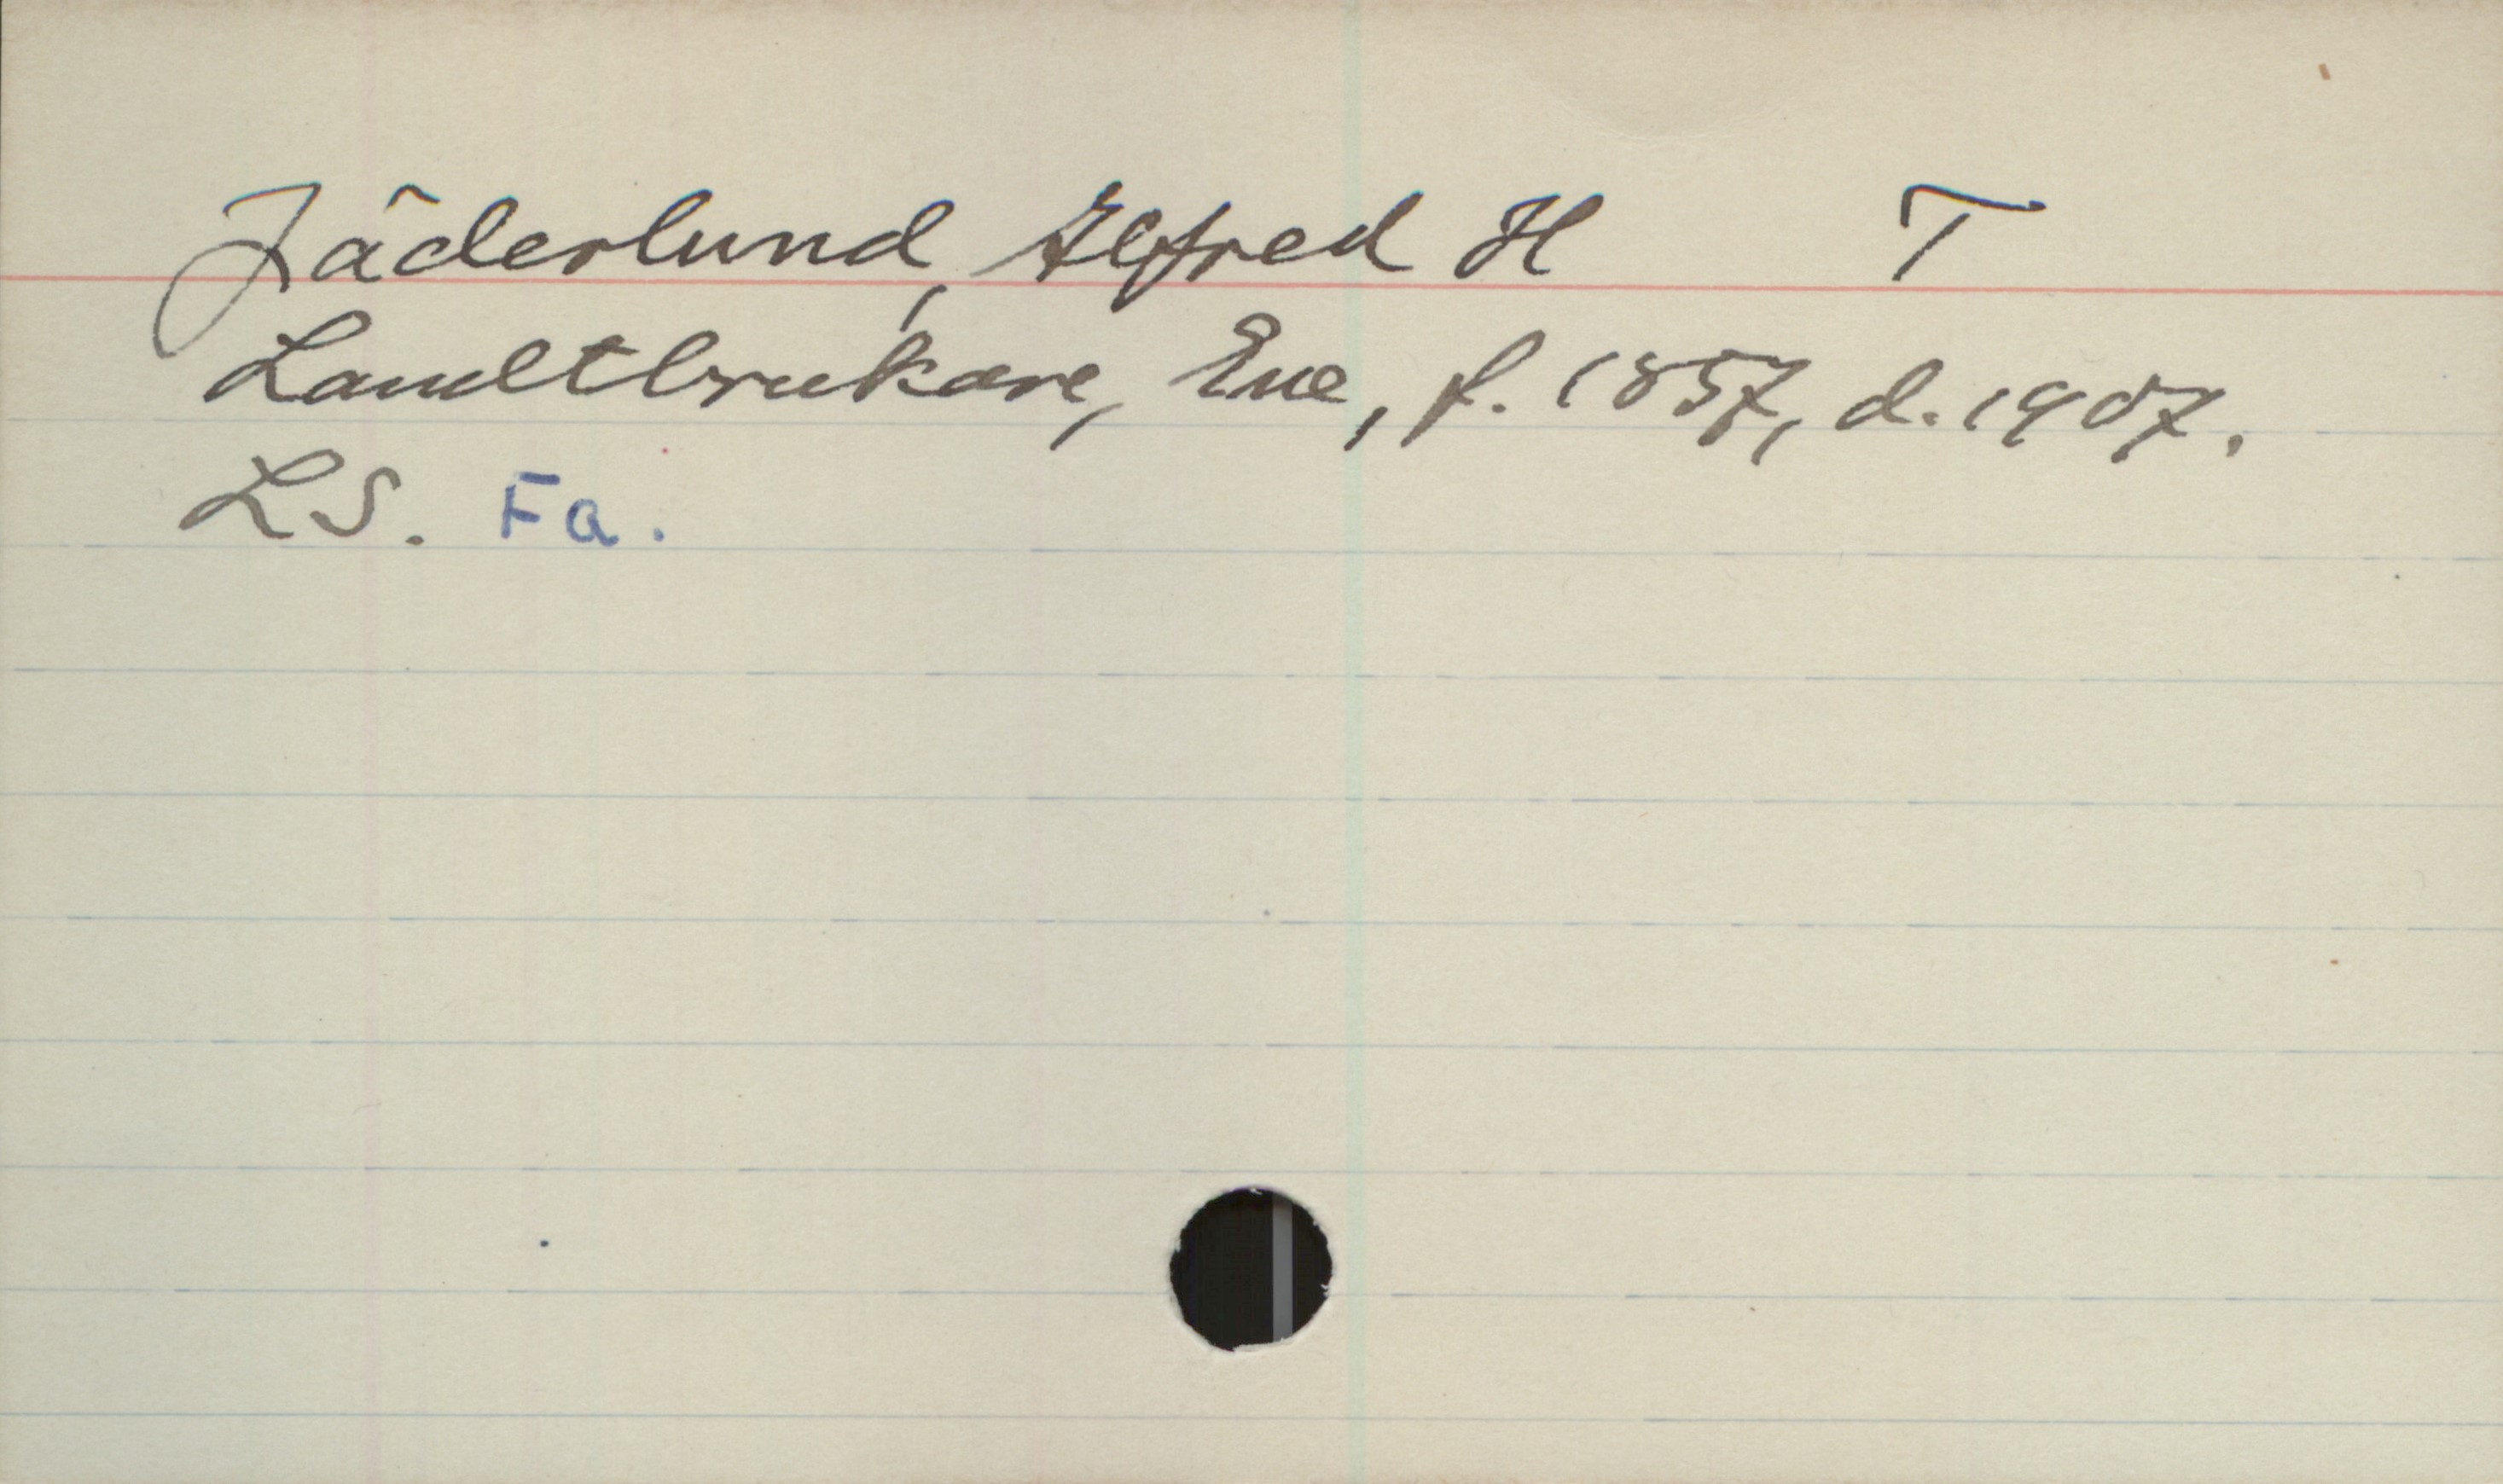 Jäderlund, Alfred H T
Landtbrukare, Ene, f. 1857, d. 1907.
LS. Fa.